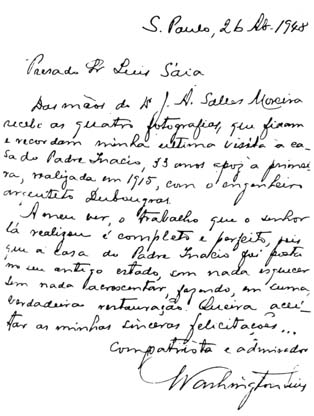 S. Paulo, 26 Ab. 1948
Presado Sr Luis Sáia
Das mãos do Dr J. A. Salles Moreira
recebi as quatro fotografias, que fixam
e recordam minha ultima visita à ca-
sa do Padre Inacio, 33 anos apoz a primei-
ra, realizada em 1915, com o engenheiro
arquiteto Dubougras.
A meu ver, o trabalho que o senhor
lá realizou é completo e perfeito, pois
que a casa do Padre Inacio foi posta
no seu antigo estado, sem nada esquecer
sem nada acrescentar, fazendo, em suma
verdadeira restauração. Queira acei-
tar as minhas sinceras felicitações...
Compatriota e admirador
Washington Luis